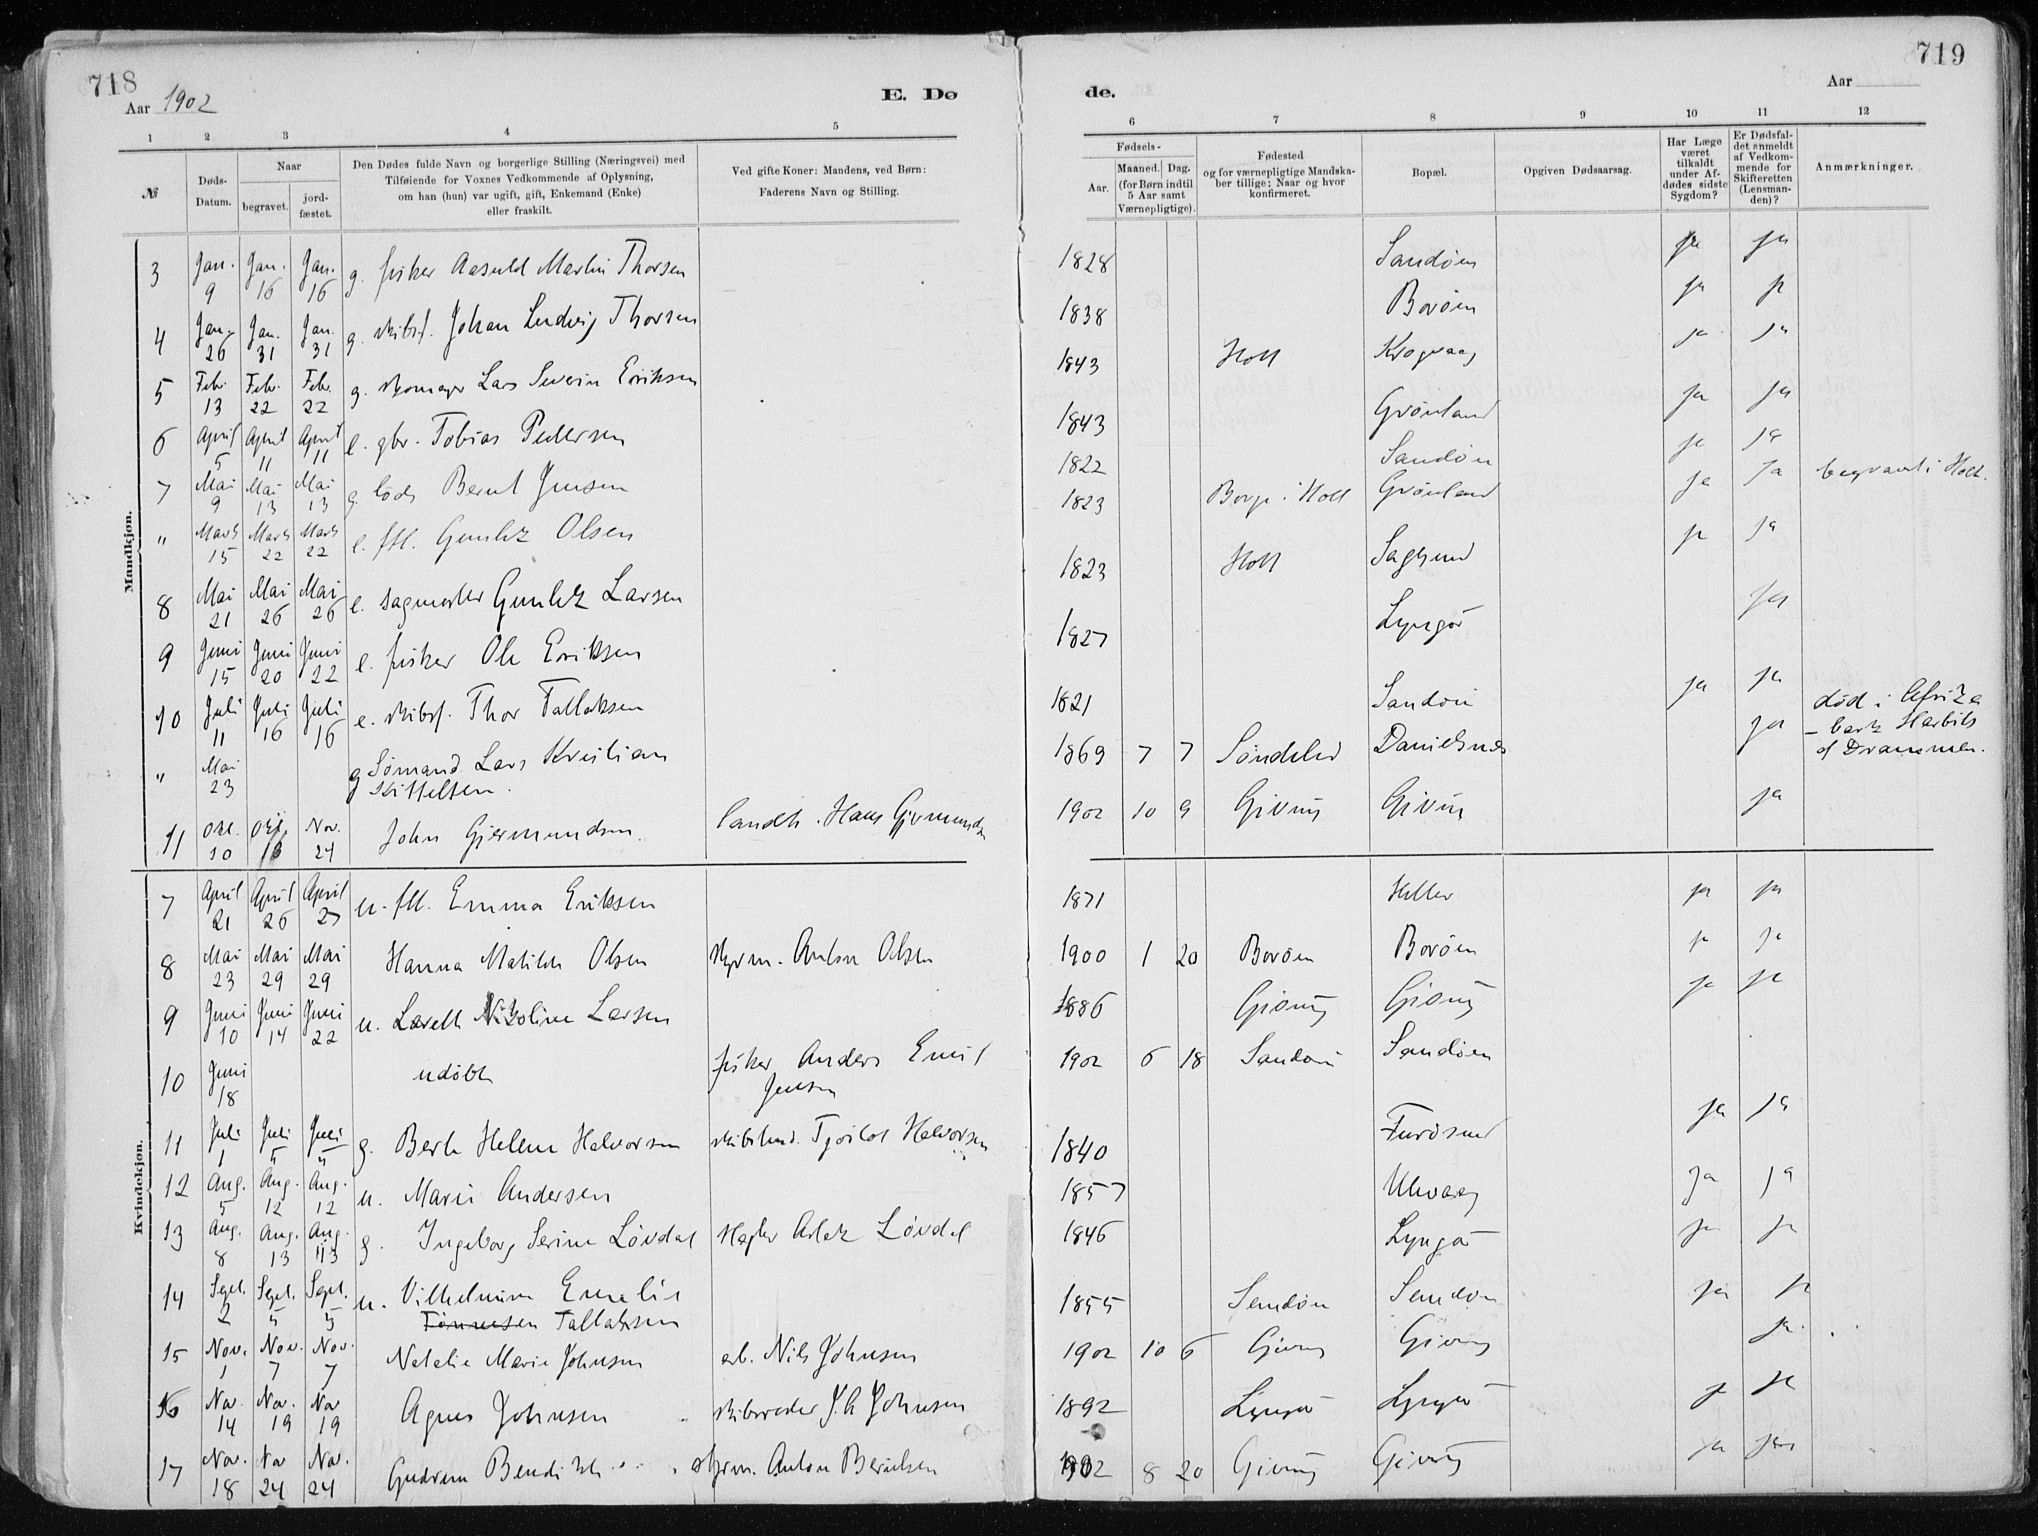 718
719
Aar 1902
E. Dø
de.
Aar
1 2 3 4 5 6 7 8 9 10 11 12
№
Døds-
Datum.
Naar
begravet.
jord-
fæstet.
Den Dødes fulde Navn og borgerlige Stilling (Næringsvei) med
Tilføiende for Voxnes Vedkommende af Oplysning,
om han (hun) var ugift, gift, Enkemand (Enke)
eller fraskilt.
Ved gifte Koner: Mandens, ved Børn:
Faderens Navn og Stilling.
Fødsels-
Aar.
Maaned.
Dag.
(for Børn indtil
5 Aar samt
Værnepligtige).
Fødested
og for værnepligtige Mandska-
ber tillige: Naar og hvor
konfirmeret.
Bopæl.
Opgiven Dødsaarsag.
Har Læge
været
tilkaldt
under Af-
dødes sidste
Sygdom?
Er Dødsfal-
det anmeldt
af Vedkom-
mende for
Skifteretten
(Lensman-
den)?
Anmærkninger.
Mandkjøn.
3 Jan. 9 Jan. 16 Jan. 16 g. fisker Aasuld Martin Thorsen 1828 Sandøen ja ja
4 Jan. 26 Jan. 31 Jan. 31 g. skibsf. Johan Ludvig Thorsen 1838 Borøen ja ja
5 Febr. 13 Febr. 22 Febr. 22 g. skomager Lars Severin Eriksen 1843 Holt Krogvaag ja ja
6 April 5 April 11 April 11 e. gbr. Tobias Pedersen 1843 Grønland ja ja
7 Mai 9 Mai 13 Mai 13 g. lods Bernt Jensen 1822 Sandøen ja ja
" Marts 15 Marts 22 Marts 22 e. fhl. Olsen 1823 Borge i Holt Grønland ja ja begravet i Holt.
8 Mai 21 Mai 26 Mai 26 e. Larsen 1823 Holt Sagesund ja ja
9 Juni 15 Juni 20 Juni 22 e. fisker Ole Eriksen 1827 Lyngør ja
10 Juli 11 Juli 16 Juli 16 e. skibsf. Thor Tallaksen 1821 Sandøen ja ja
" Mai 23 g Sømand Lars Kristian
Kittelsen. 1869 7 7 Søndeled Danielsnes ja død i Afrika
– bark
af Drammen.
11 Okt. 10 Okt. Nov. 24 John Gjermundsen. landh. Hans Gjermundsen 1902 10 9 Giving Giving ja
Kvindekjøn.
7 April 21 April 26 April 27 u. fhl. Emma Eriksen 1871 Heller ja ja
8 Mai 23 Mai 29 Mai 29 Hanna Matilde Olsen styrm. Anton Olsen 1900 1 20 Borøen Borøen ja ja
9 Juni 10 Juni 14 Juni 22 u. Nikoline Larsen 1886 Giving Giving ja ja
10 Juni 18 udøbt fisker Anders Emil
Jensen 1902 6 18 Sandøen Sandøen
11 Juli 1 Juli 5 Juli 5 g. Berte Helene Halvorsen Halvorsen 1840 Furøsund ja ja
12 Aug. 5 Aug. 12 Aug. 12 u. Marie Andersen 1857 Ulevaag ja ja
13 Aug. 8 Aug. 13 Aug. 13 g. Ingeborg Serine Løvdal Løvdal 1846 Lyngør ja ja
14 Sept. 2 Sept. 5 Sept. 5 u. Vilhelmine Emelie
Tønnesen Tallaksen 1855 Sandøen Sandøen ja ja
15 Nov. 1 Nov. 7 Nov. 7 Natalie Marie Johnsen arb. Nils Johnsen 1902 10 6 Giving Giving ja
16 Nov. 14 Nov. 19 Nov 19 Agnes Johnsen skibsreder J. A Johnsen 1892 Lyngør Lyngør ja ja
17 Nov. 18 Nov 24 Nov. 24 Gudrun styrm. Anton Berntsen 1902 8 20 Giving Giving ja ja